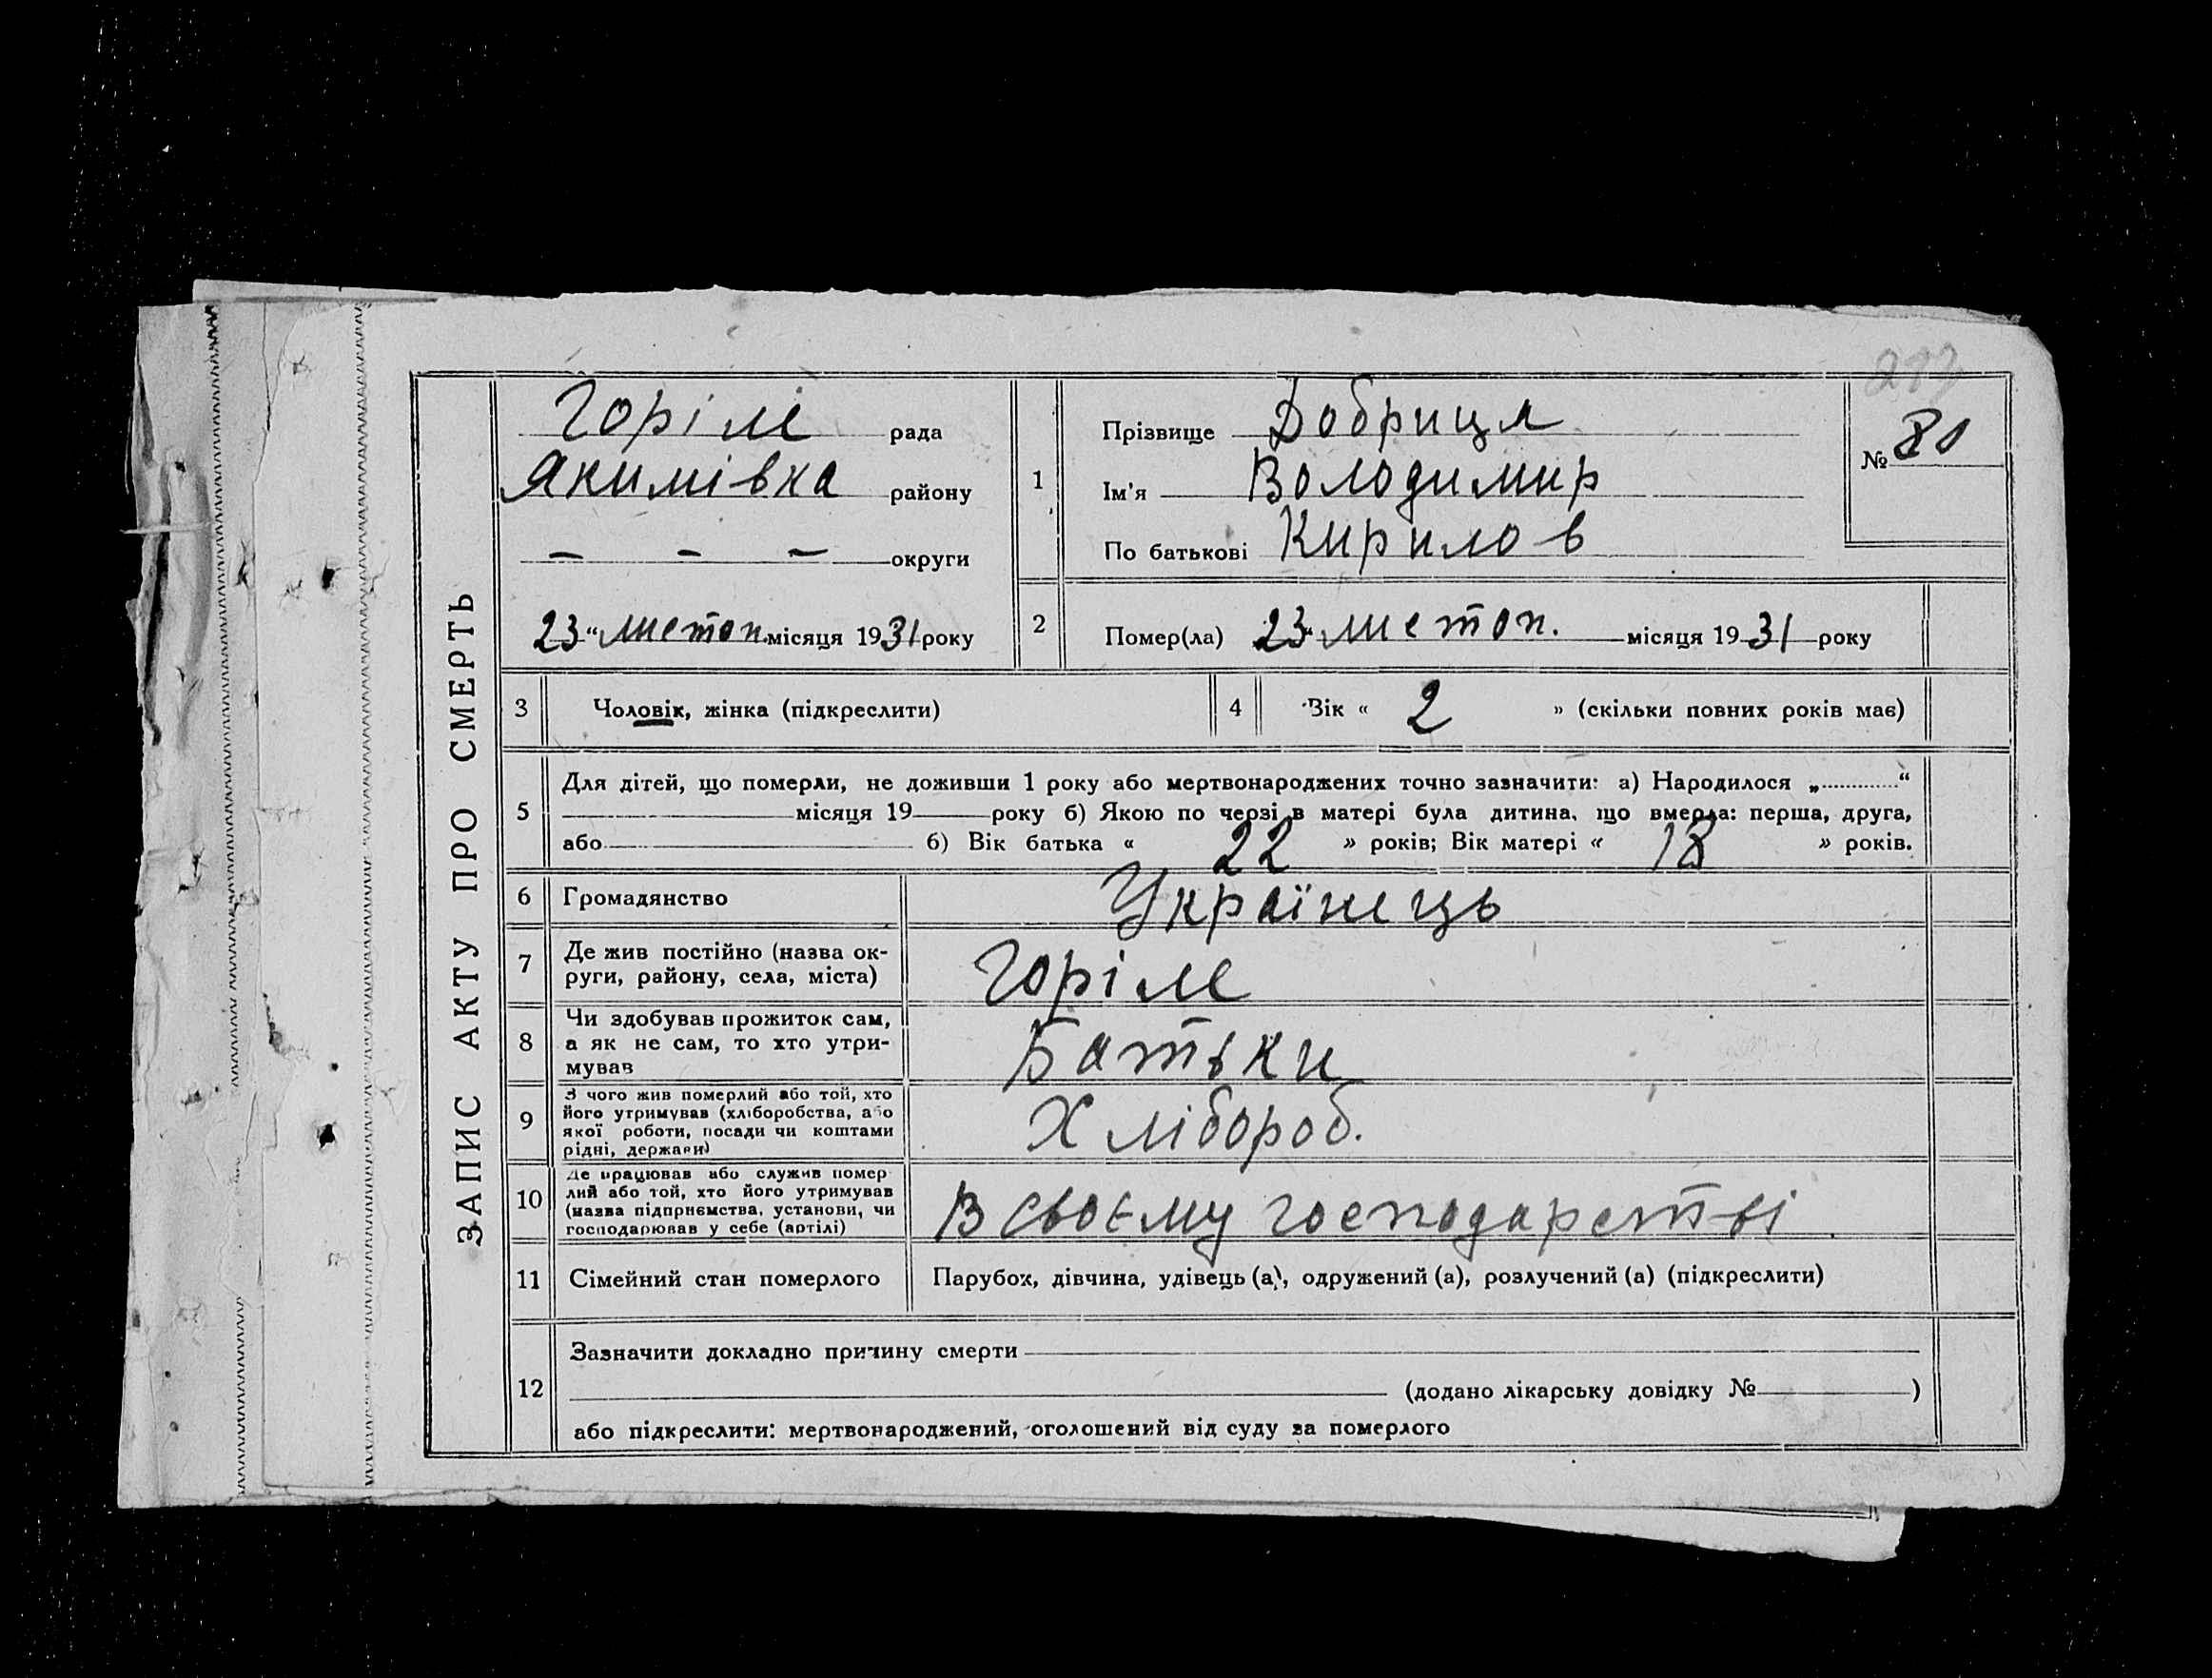 ЗАПИС АКТУ ПРО СМЕРТЬ
Горіле рада
Якимівка району
— — — округи
23 “ листоп. місяця 1931 року
1
Прізвище Добриця
Ім'я Володимир
По батькові Кирилов
№ 80
2
Помер(ла) 23 “ листоп. місяця 1931 року
3 Чоловік, жінка (підкреслити)
4 Вік « 2 » (скільки повних років має)
5
Для дітей, що померли, не доживши 1 року або мертвонароджених точно зазначити: а) Народилося „ “
місяця 19 року б) Якою по черзі в матері була дитина, що вмерла: перша, друга,
або б) Вік батька « 22 » років; Вік матері « 18 » років.
6 Громадянство Українець
7
Де жив постійно (назва ок-
руги, району, села, міста)
Горіле
8
Чи здобував прожиток сам,
а як не сам, то хто утри-
мував
Батьки
9
З чого жив померлий або той, хто
його утримував (хліборобства, або
якої роботи, посади чи коштами
рідні, держави)
Хлібороб.
10
Де працював або служив помер-
лий або той, хто його утримував
(назва підприємства, установи, чи
господарював у себе (артілі)
В своєму господарстві
11 Сімейний стан померлого Парубок, дівчина, удівець (а), одружений (а), розлучений (а) (підкреслити)
12
Зазначити докладно причину смерти
(додано лікарську довідку № )
або підкреслити: мертвонароджений, оголошений від суду за померлого